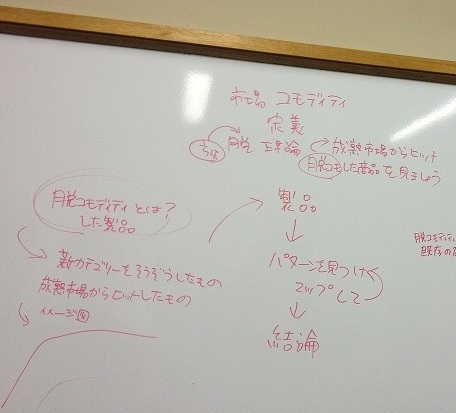 市場 コモディティ
定義
方法 脱 理論 成熟市場からヒット
脱コモした商品を見ましょう
脱コモディティとは?
した製品
製品
新カテゴリーをそうぞうしたもの
成熟市場からヒットしたもの
イメージ図
パターンを見つけ
マップして
結論
脱コモディティ
既存の